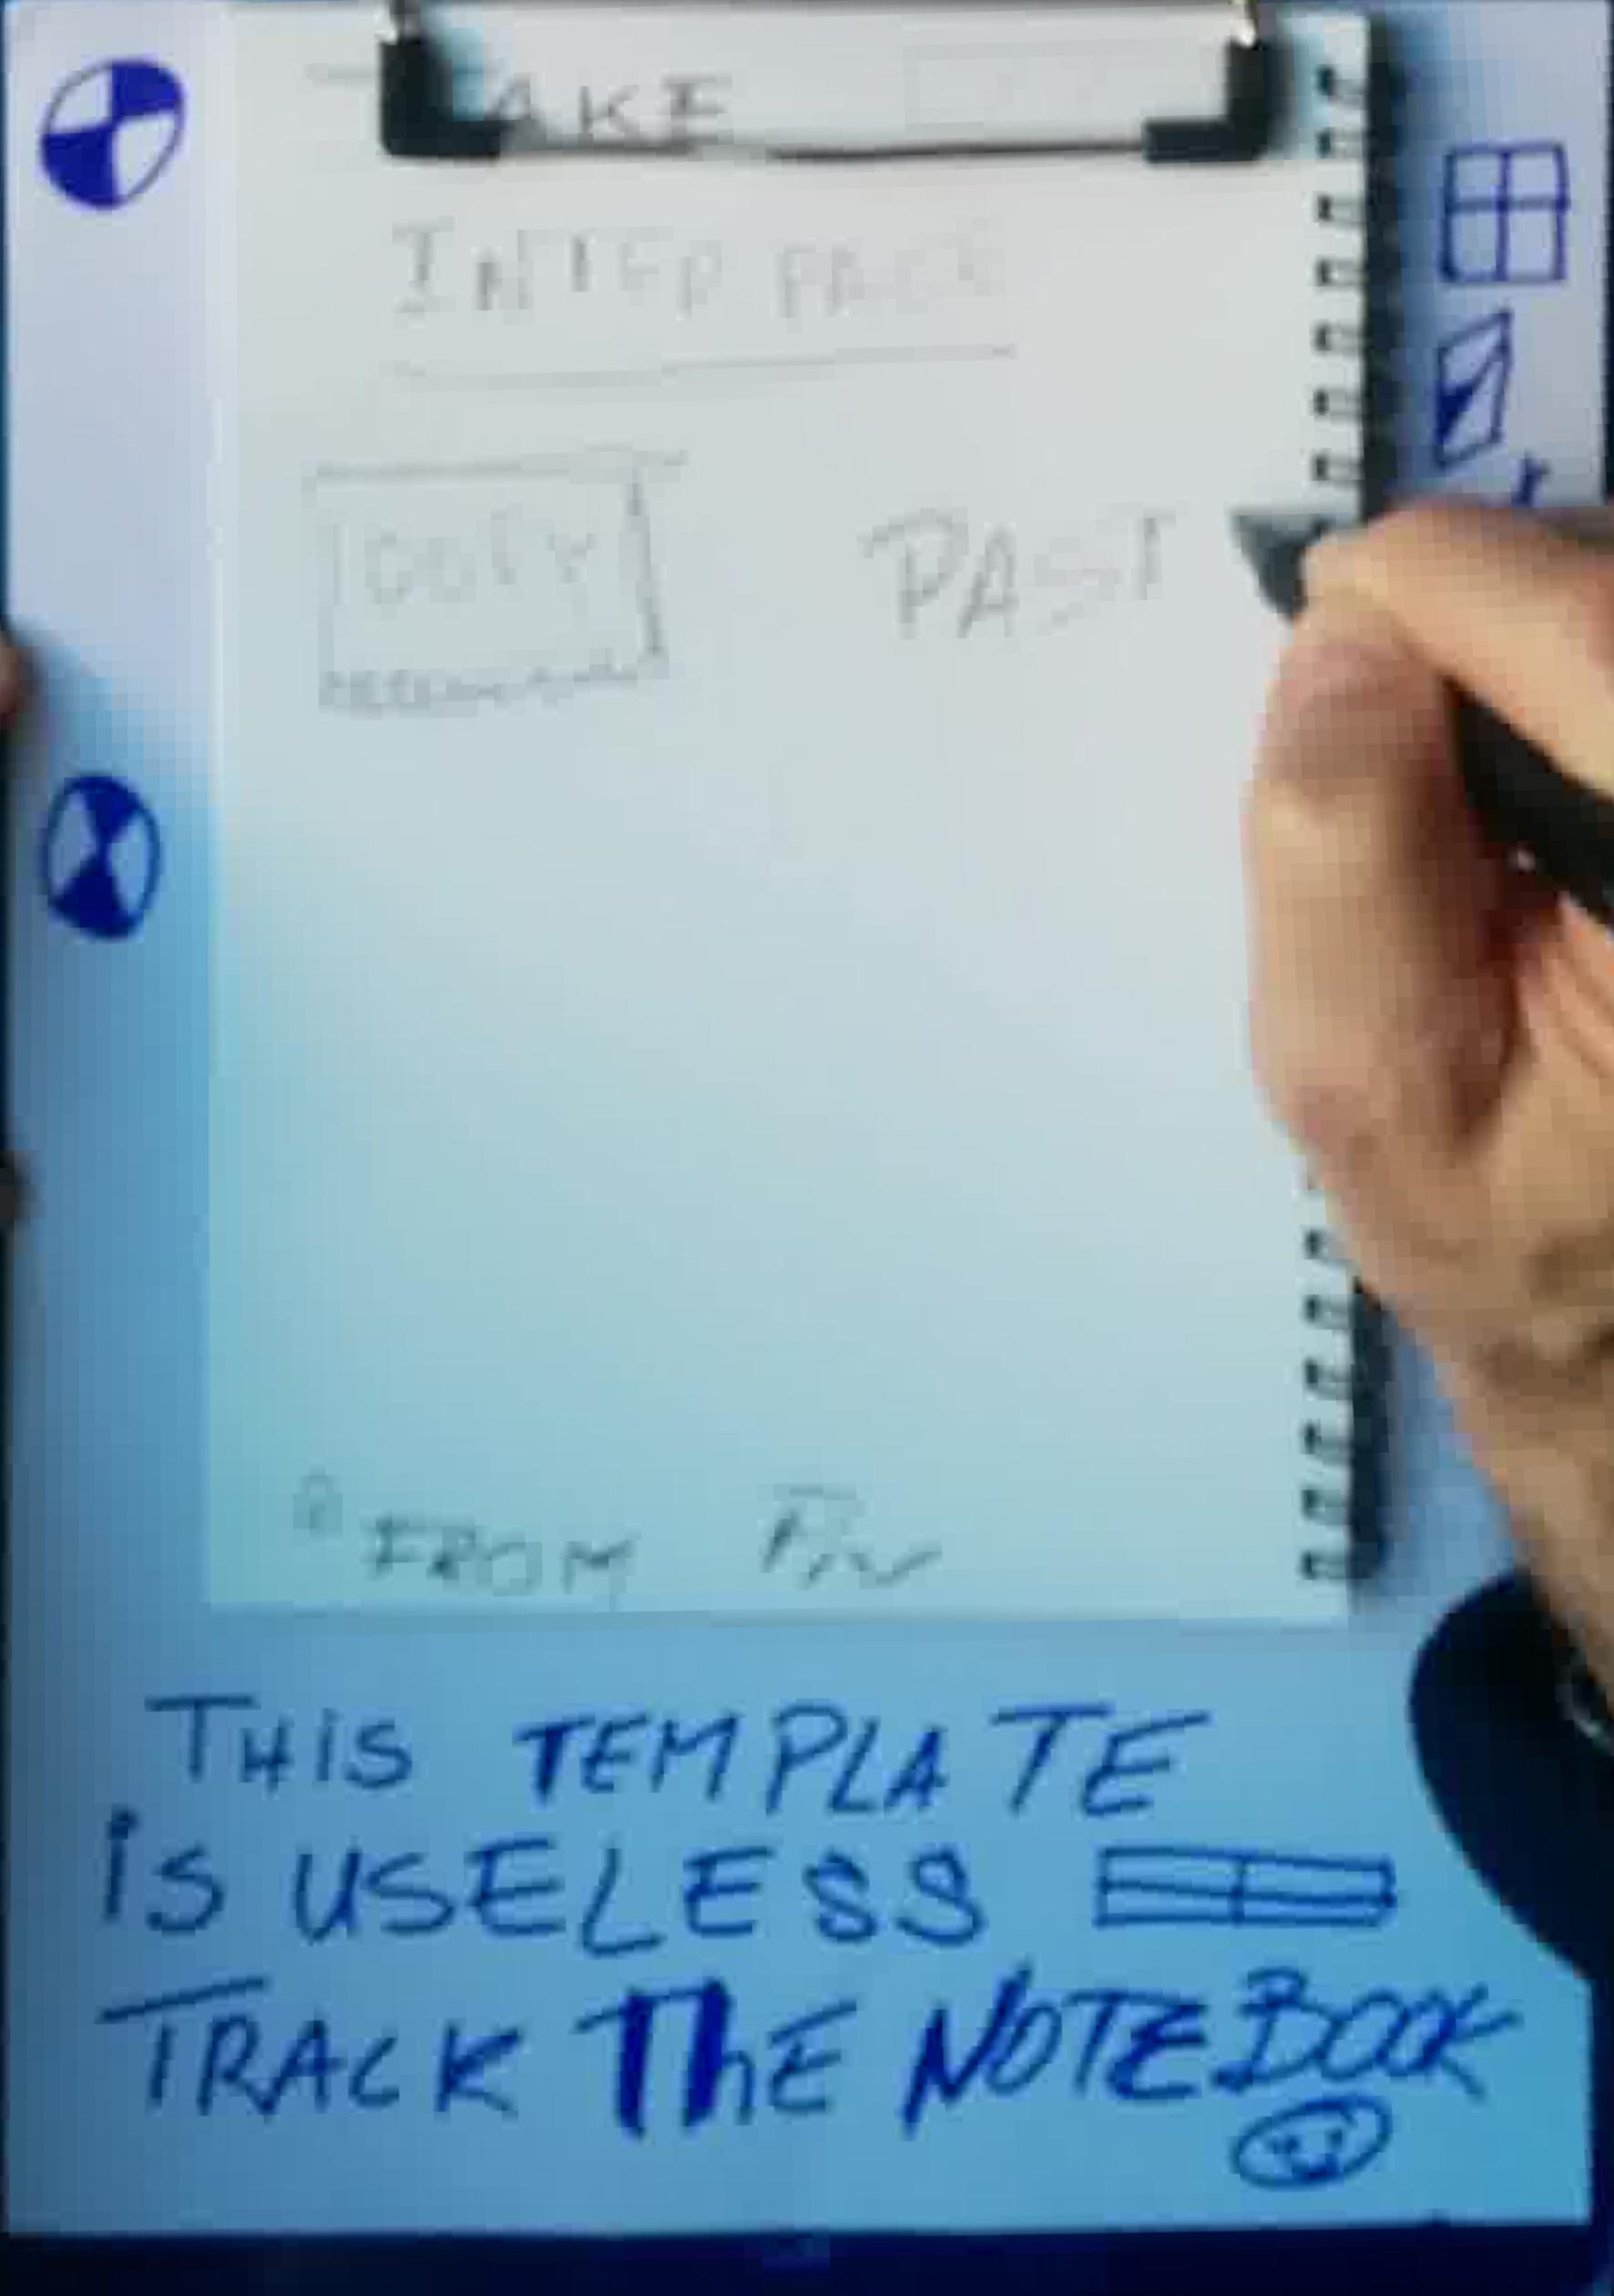 TAKE
INTERFACE
COPY PAST
FROM
THIS TEMPLATE
iS USELESS
TRACK ThE NOTEBOOK